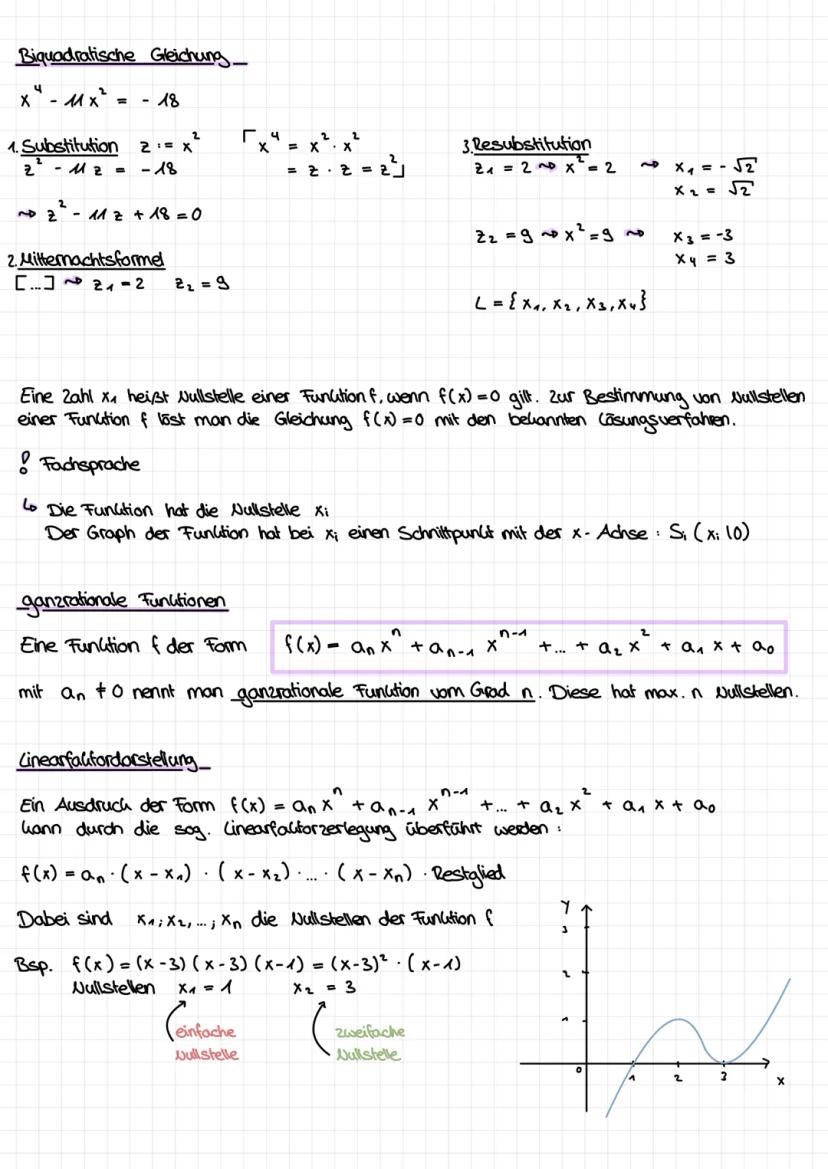 Biquadratische Gleichung
x⁴ - 11x² = - 18
1. Substitution z := x² ⌈x⁴ = x² · x²
z² - 11z = -18 = z · z = z²⌋
⇝ z² - 11z + 18 = 0
2. Mitternachtsformel
[...] ⇝ z₁ = 2 z₂ = 9
3. Resubstitution
z₁ = 2 ⇝ x² = 2 ⇝ x₁ = - √2
x₂ = √2
z₂ = 9 ⇝ x² = 9 ⇝ x₃ = -3
x₄ = 3
L = {x₁, x₂, x₃, x₄}
Eine Zahl x₁ heißt Nullstelle einer Funktion f, wenn f(x) = 0 gilt. Zur Bestimmung von Nullstellen
einer Funktion f löst man die Gleichung f(x) = 0 mit den bekannten Lösungsverfahren.
! Fachsprache
↳ Die Funktion hat die Nullstelle xᵢ
Der Graph der Funktion hat bei xᵢ einen Schnittpunkt mit der x-Achse : Sᵢ (xᵢ|0)
ganzrationale Funktionen
Eine Funktion f der Form f(x) = aₙxⁿ + aₙ₋₁ xⁿ⁻¹ + ... + a₂x² + a₁x + a₀
mit aₙ ≠ 0 nennt man ganzrationale Funktion vom Grad n. Diese hat max. n Nullstellen.
Linearfaktordarstellung
Ein Ausdruck der Form f(x) = aₙxⁿ + aₙ₋₁ xⁿ⁻¹ + ... + a₂x² + a₁x + a₀
kann durch die sog. Linearfaktorzerlegung überführt werden :
f(x) = aₙ · (x - x₁) · (x - x₂) · ... · (x - xₙ) · Restglied
Dabei sind x₁; x₂, ...; xₙ die Nullstellen der Funktion f
Bsp. f(x) = (x-3) (x-3) (x-1) = (x-3)² · (x-1)
Nullstellen x₁ = 1 x₂ = 3
einfache
Nullstelle
zweifache
Nullstelle
y
3
2
1
0 1 2 3 x